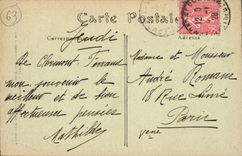 63
Carte Postale
Correspondance
Adresse
Jeudi
De Clermont Ferrand
mon souvenir le
meilleur et de bien
affectueuses pensées
Mathilde
Madame et Monsieur
André Romane
18 Rue
Paris